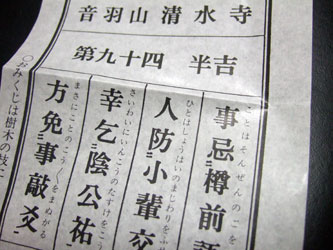 音羽山清水寺
第九十四 半吉
ことはそんぜんのこ
事忌二樽前語
ひとはしょうはいのまじりをふせ
人防二小輩交
さいわいにいんこうのたすけをこう
幸乞二陰公祐
まさにことのこうくをまぬがる
方免二事敲爻
○おみくじは樹木の枝に